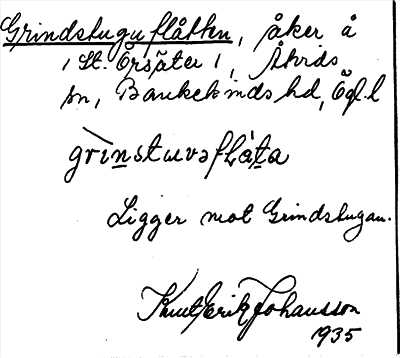 Grindstuguflåtten, åker å
, St. Örsäter, Åtvids
sn, Bankekinds hd, Ögl. l
grìnstɯvəfLát̲a
Ligger mot Grindstugan.
Knut Erik Johansson
1935